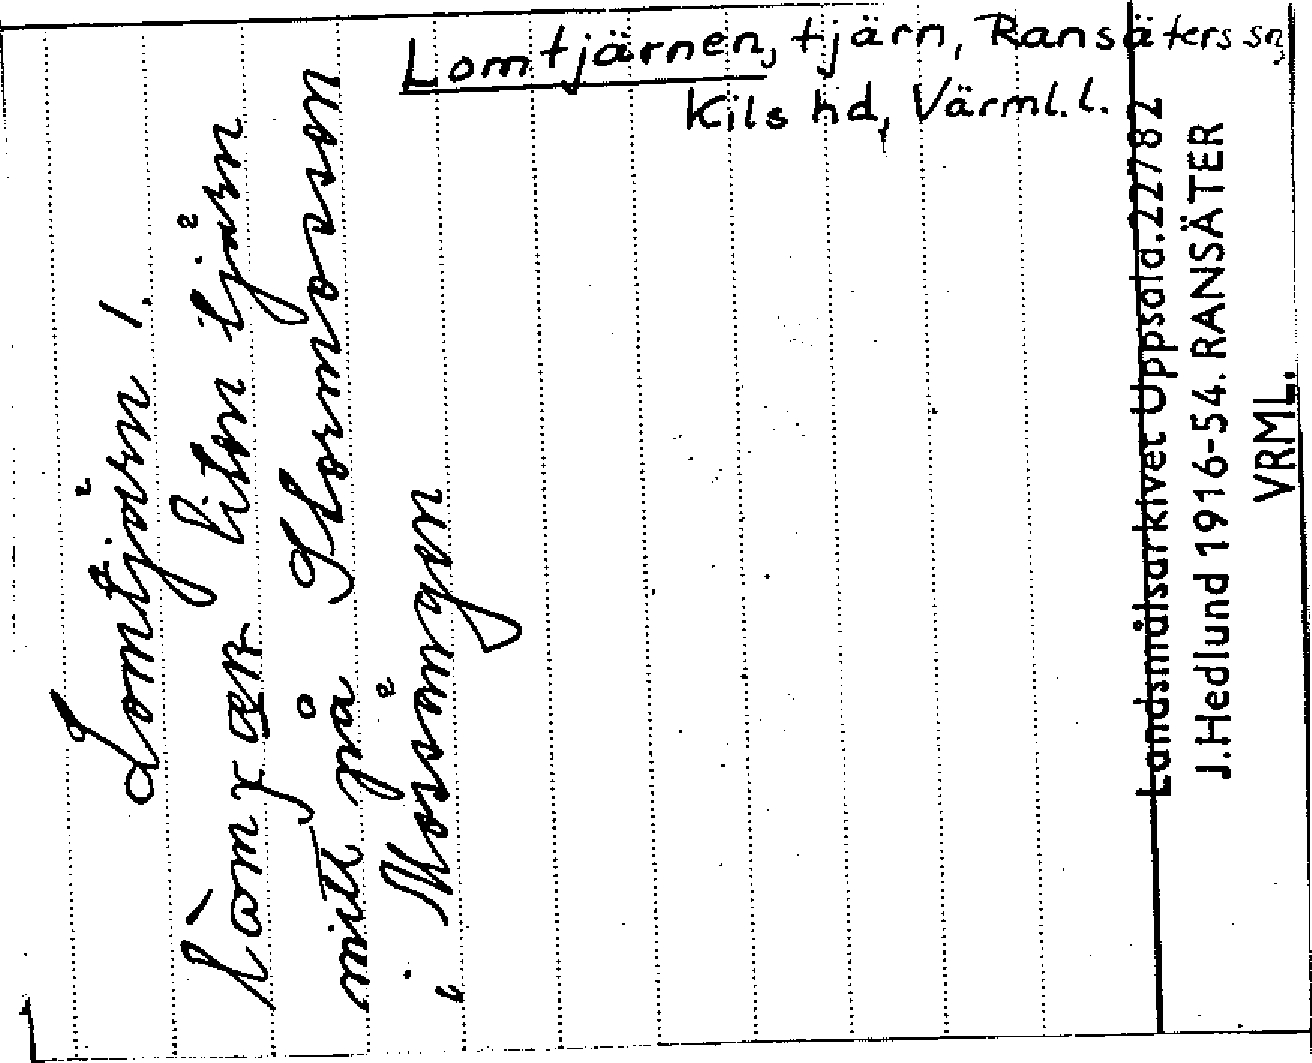 Lomtjärnen, tjärn, Ransäters sn,
Kils hd, Värml. l.
Lomtjärn 1.
liten tjärn
mitt på Stormosson
i Mosängen
Landsmålsarkivet Uppsala. 22782
J. Hedlund 1916-54. RANSÄTER
VRML.